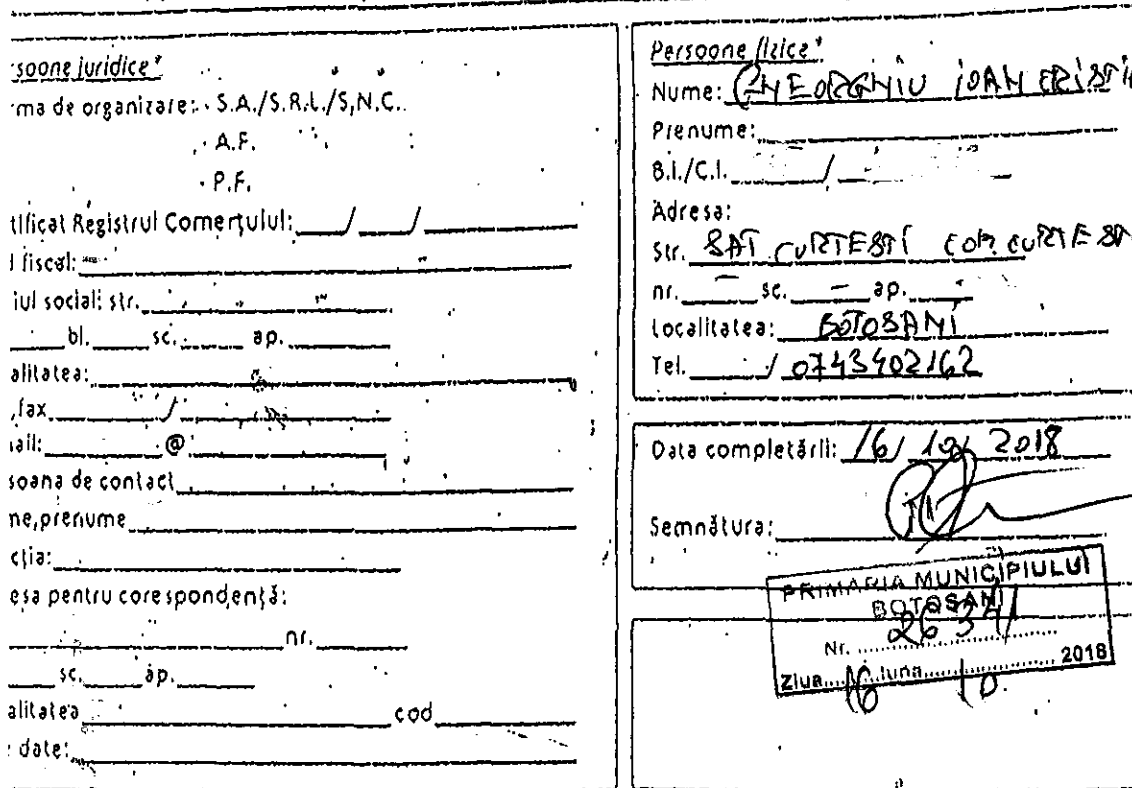 soone juridice*
rma de organizare: · S.A./S.R.L./S.N.C.
· A.F.
· P.F.
tificat Registrul Comerţului: ___/___/___
l fiscal:
iul social: str.
bl. sc. ap.
alitatea:
,fax /
ail: @
soana de contact
ne,prenume
cţia:
esa pentru corespondenţă:
nr.
sc. ap.
alitatea cod
date:
Persoone fizice*
Nume: GHEORGHIU IOAN CRISTIN
Prenume:
B.I./C.I. /
Adresa:
Str. SAT CURTESTI COM. CURTEST
nr. — sc. — ap. —
Localitatea: BOTOSANI
Tel. / 0743402162
Data completării: 16/ 10/ 2018
Semnătura:
PRIMARIA MUNICIPIULUI
BOTOSANI
Nr.
Ziua 16 luna 10 2018